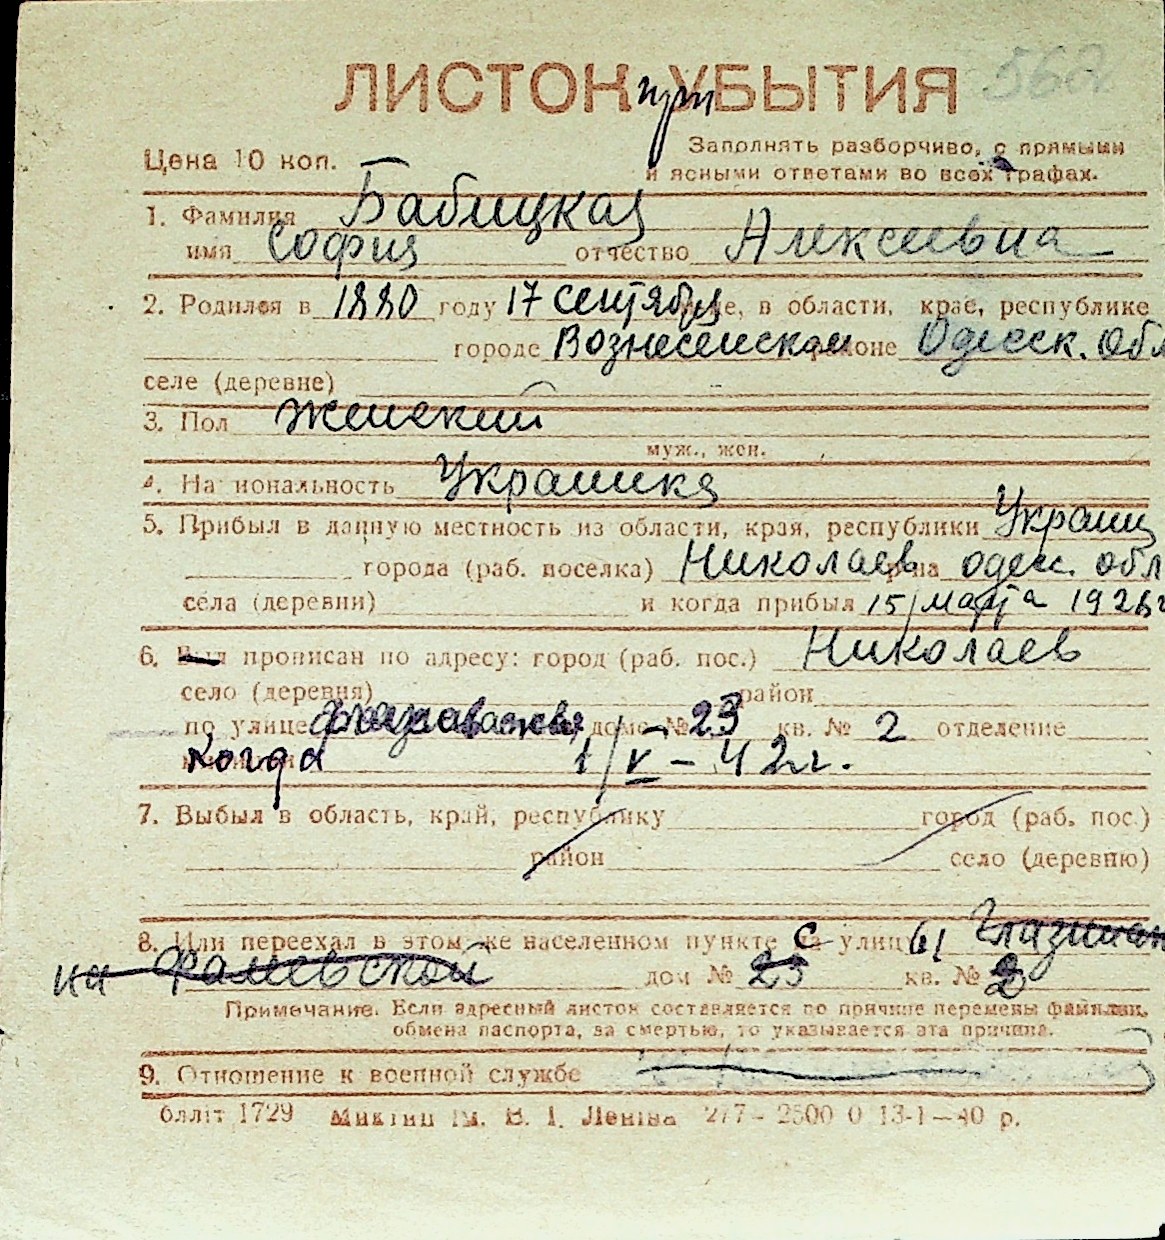 ЛИСТОК при УБЫТИЯ 562
Цена 10 коп.
Заполнять разборчиво, с прямыми
и ясными ответами во всех графах.
1. Фамилия Бабицкая
имя София отчество Алексеевна
2. Родился в 1880 году 17 сентября не, в области, крае, республике
городе Вознесенском районе Одесск. обл
селе (деревне)
3. Пол женский
муж., жен.
4. Национальность Украинка
5. Прибыл в данную местность из области, края, республики Украины
города (раб. поселка) Николаев р-на одесс. обл
села (деревни) и когда прибыл 15/марта 1928 г
6. Был прописан по адресу: город (раб. пос.) Николаев
село (деревня) район
по улице доме № 23 кв. № 2 отделение
когда 1/V - 42 г.
7. Выбыл в область, край, республику город (раб. пос.)
район село (деревню)
8. Или переехал в этом же населенном пункте с на улицу ы
на Фалеевской дом № 25 кв. № 2
Примечание. Если адресный листок составляется по причине перемены фамилии,
обмена паспорта, за смертью, то указывается эта причина.
9. Отношение к военной службе
білліт 1729 Микіпп ім. В. І. Леніна 277 - 2500 0 13-1-40 р.